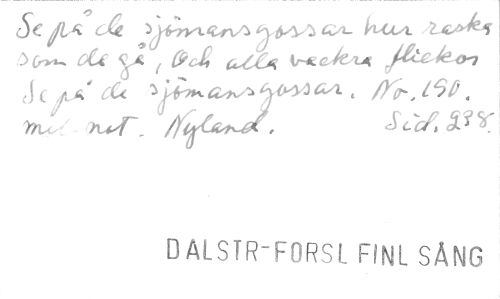 Se på de sjömansgossar hur raska
som de gå, Och alla vackra flickor
Se på de sjömansgossar. No, 190.
mel. not. Nyland. Sid. 238.
DALSTR-FORSL FINL SÅNG